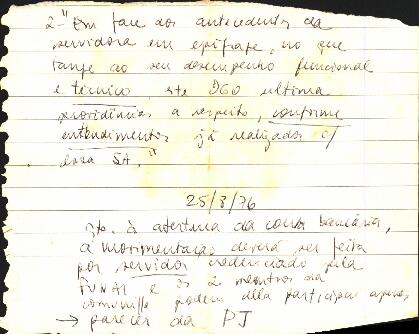 2-"Em face dos antecedentes da
servidora em epígrafe, no que
tange ao seu desempenho funcional
e técnico este DGO ultima
providências a respeito, conforme
entendimentos já realizados c/
essa SA."
25/8/76
à abertura da conta bancária,
a movimentação deverá ser feita
por servidor credenciado pela
FUNAI e os 2 membros da
comunid. podem dela participar apenas,
→ parecer da PJ